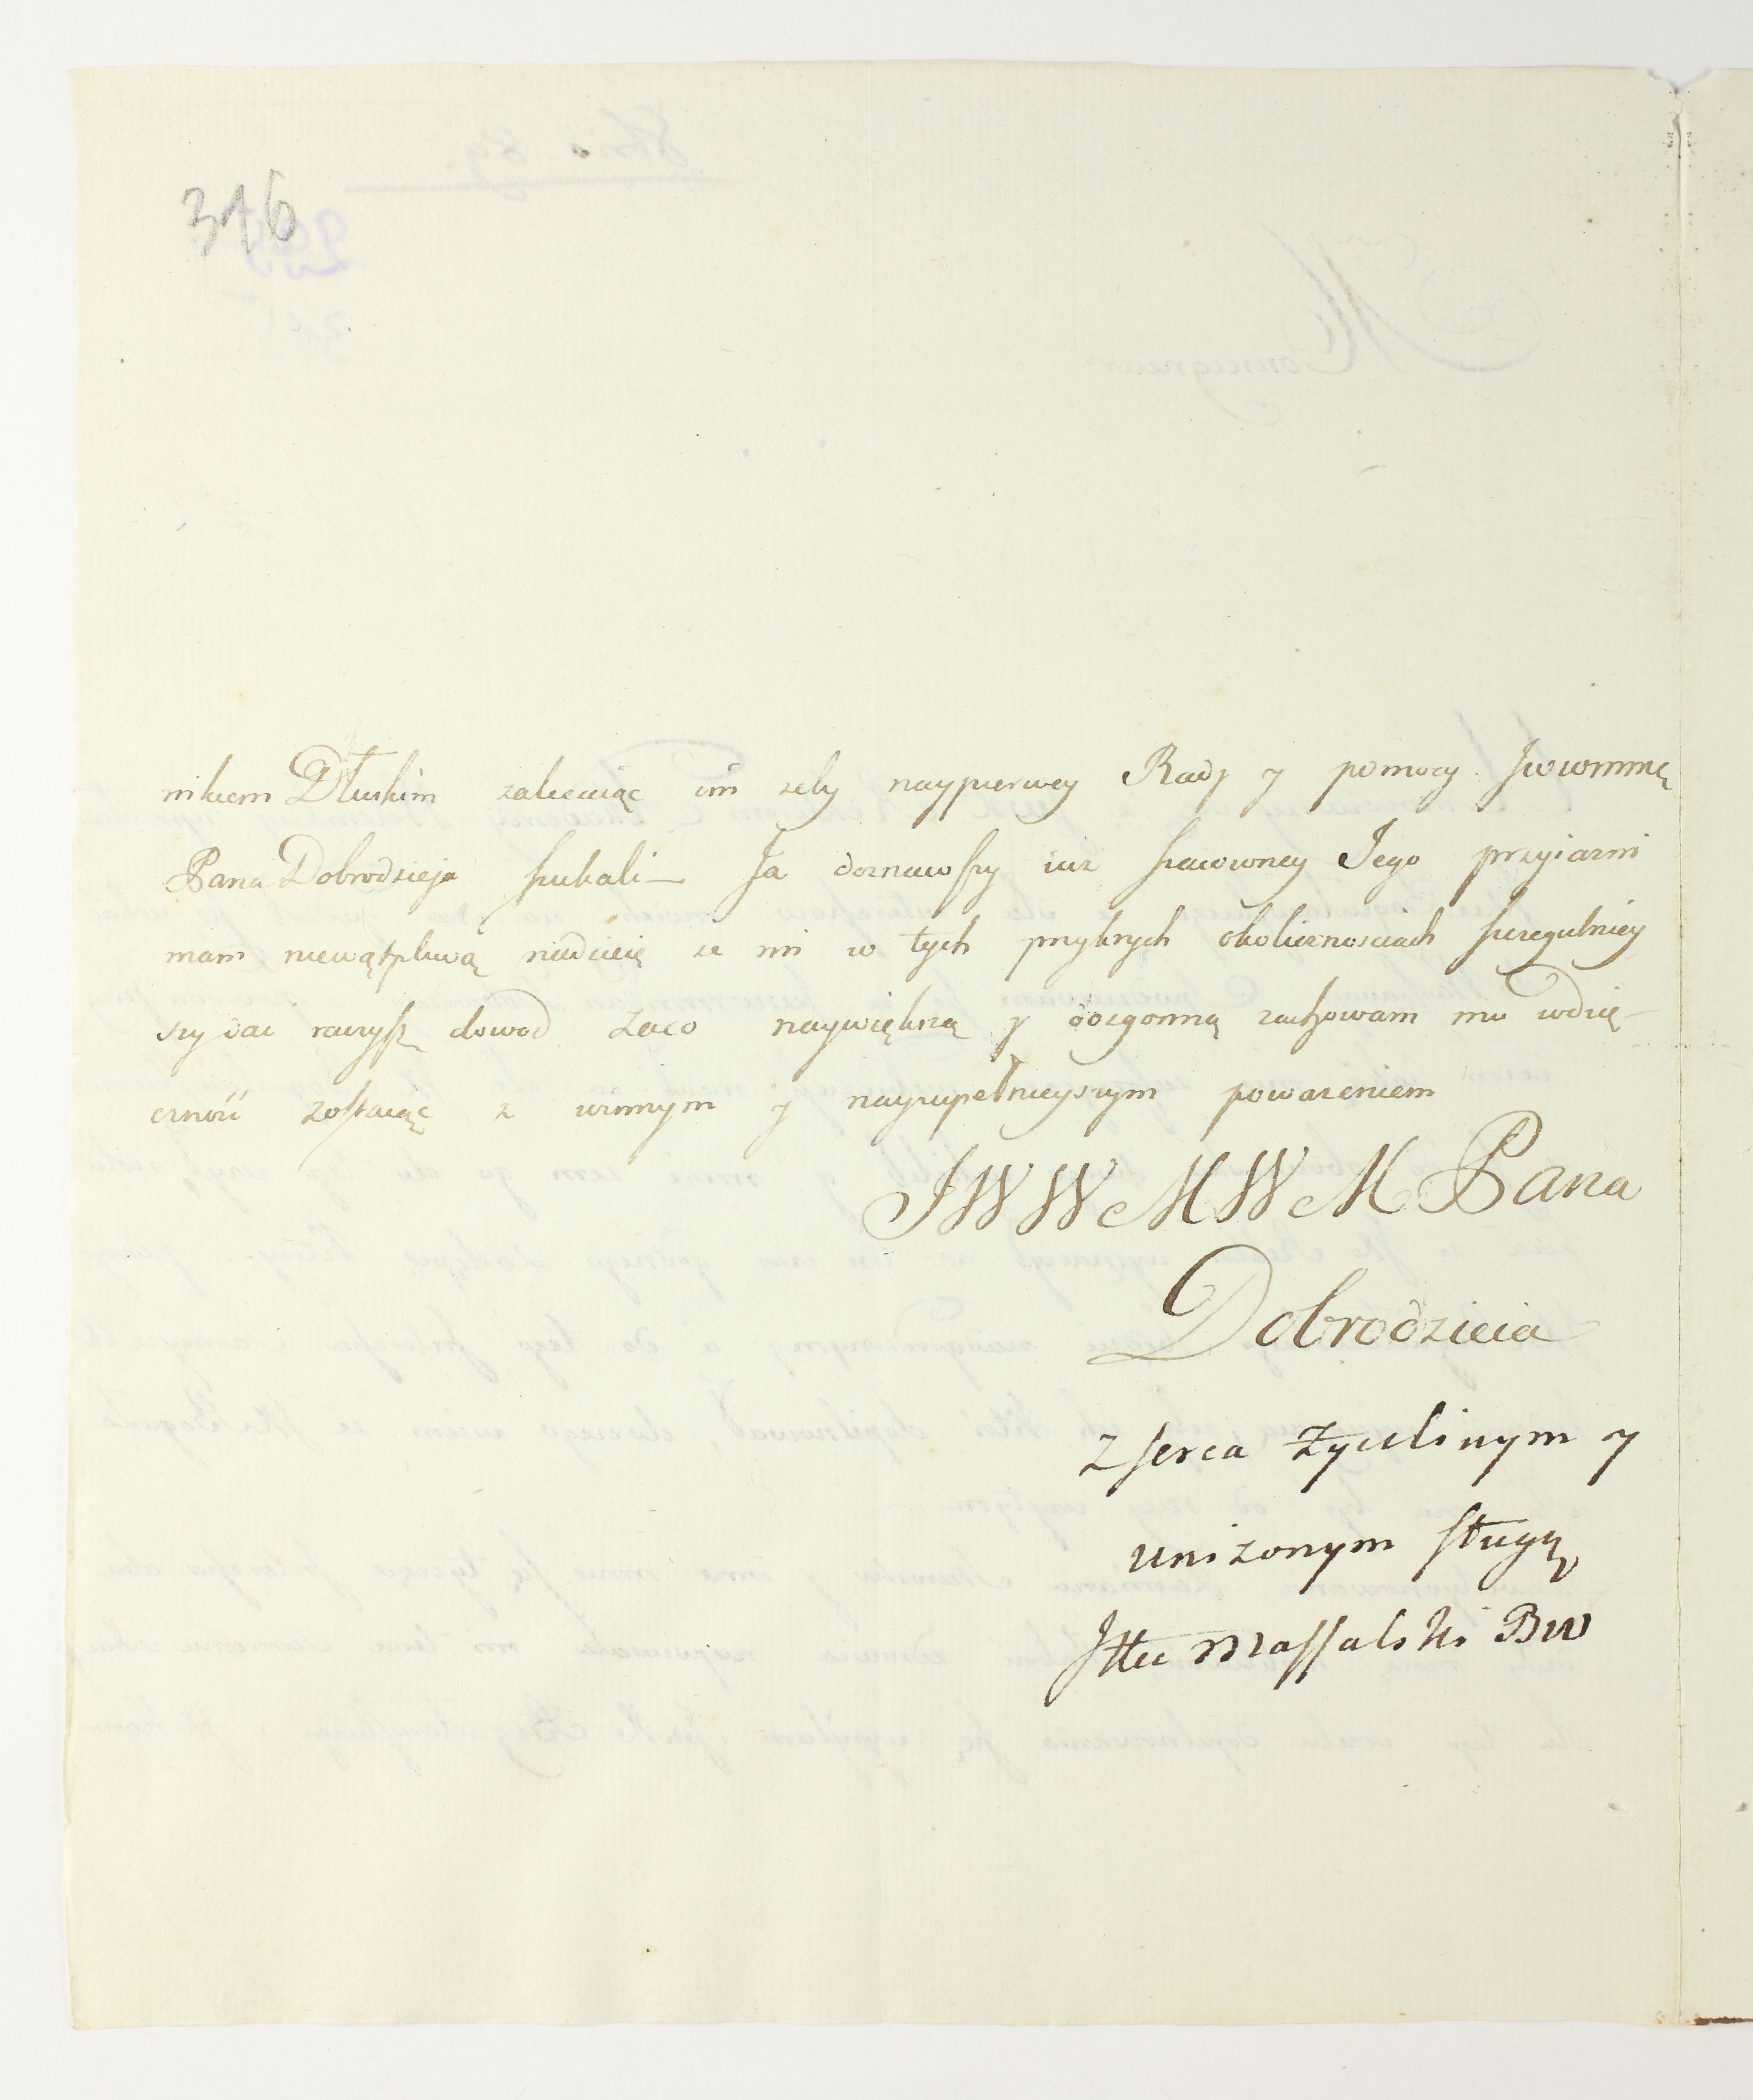 316
nikiem Dłuskim zalecaiąc im zeby naypierwey Rady y pomocy
Pana Dobrodzieja szukali — Ja doznawszy iuz szacowney Jego przyiazni
mam niewątpliwą nadzieię ze mi w tych przykrych okolicznosciach szczegulniey
szy dac raczysz dowod zaco naywiększą y dozgonną zachowam mu wdzię-
czność zostaiąc z winnym y nayzupełnieyszym powazeniem
JWW MWM Pana
Dobrodzieia
z serca zyczliwym y
unizonym sługą
Massalski BW